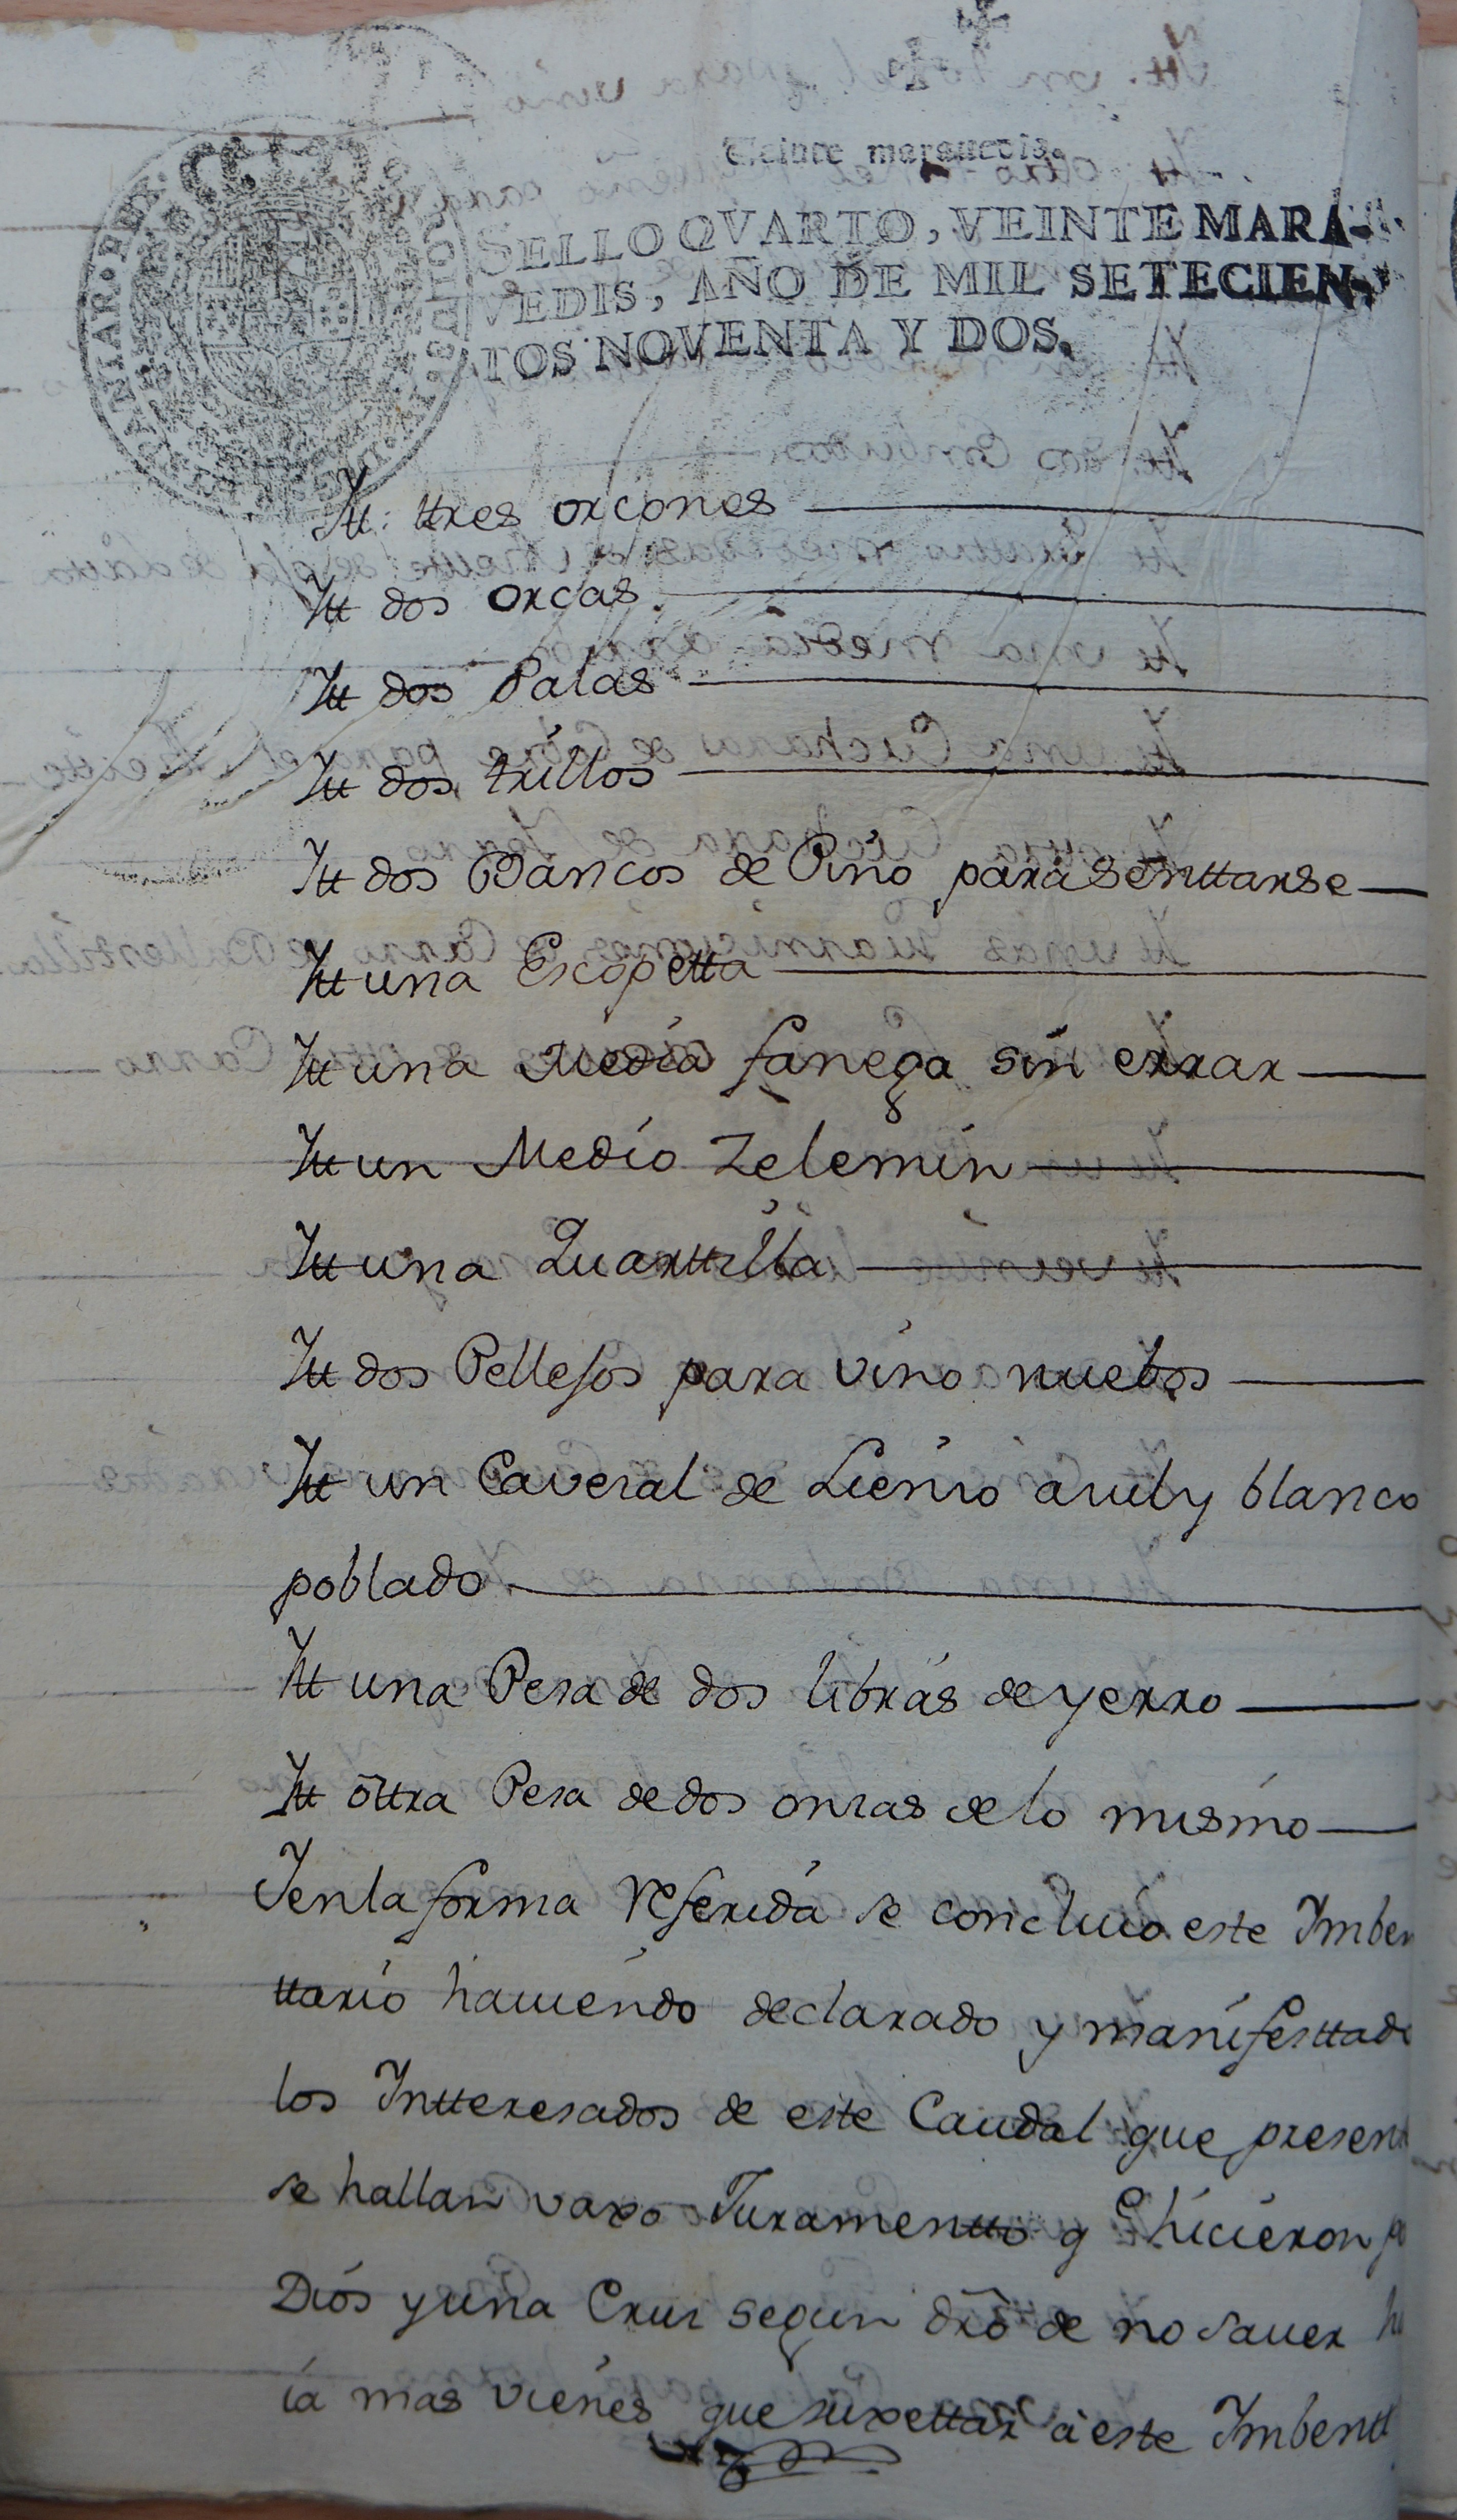 Veinte maravedis.
SELLO QVARTO, VEINTE MARA-
VEDIS, AÑO DE MIL SETECIEN-
TOS NOVENTA Y DOS.
Itt: ttres orcones
Itt dos orcas
Itt dos Palas
Itt dos trillos
Itt dos Bancos de Pino para senttarse
Itt una Escopetta
Itt una Media fanega sin errar
Itt un Medio Zelemin
Itt una Quarttilla
Itt dos Pellejos para vino nuebos
Itt un Cavezal de Lienzo azul y blanco
poblado
Itt una Pesa de dos libras de yerro
Itt ottra Pesa de dos onzas de lo mismo
Y en la forma Referida se concluio este Imben
ttario haviendo declarado y manifesttado
los Intteresados de este Caudal que present
se hallan vaxo Juramentto q hicieron p
Dios y una Cruz segun dro de no saver h
ia mas vienes que suxettar a este Imbentt